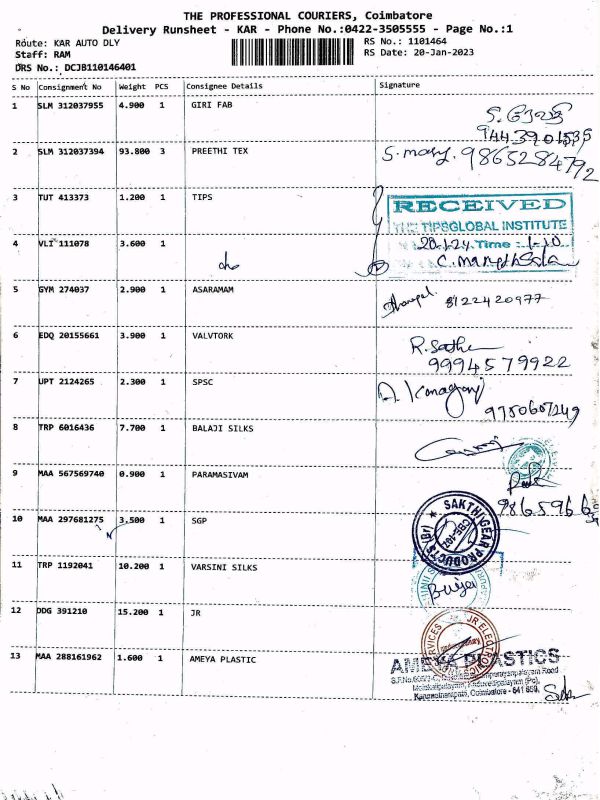 THE PROFESSIONAL COURIERS, Coimbatore
Delivery Runsheet - KAR - Phone No.:0422-3505555 - Page No.:1
Route: KAR AUTO DLY
RS No.: 1101464
Staff: RAM
RS Date: 20-Jan-2023
DRS No.: DCJB110146401
S No Consignment No Weight PCS Consignee Details Signature
1 SLM 312037955 4.900 1 GIRI FAB
2 SLM 312037394 93.800 3 PREETHI TEX
S. mary. 9865284792
3 TUT 413373 1.200 1 TIPS
RECEIVED
THE TIPSGLOBAL INSTITUTE
Time : 1-10
4 VLI 111078 3.600 1
5 GYM 274037 2.900 1 ASARAMAM
8122420977
6 EDQ 20155661 3.900 1 VALVTORK
R. Sathe
9994579922
7 UPT 2124265 2.300 1 SPSC
8 TRP 6016436 7.700 1 BALAJI SILKS
9 MAA 567569740 0.900 1 PARAMASIVAM
10 MAA 297681275 3.500 1 SGP
SAKTHI GEAR PRODUCTS
11 TRP 1192041 10.200 1 VARSINI SILKS
12 DDG 391210 15.200 1 JR
13 MAA 288161962 1.600 1 AMEYA PLASTIC
AMEYA PLASTICS
Coimbatore - 641 659.